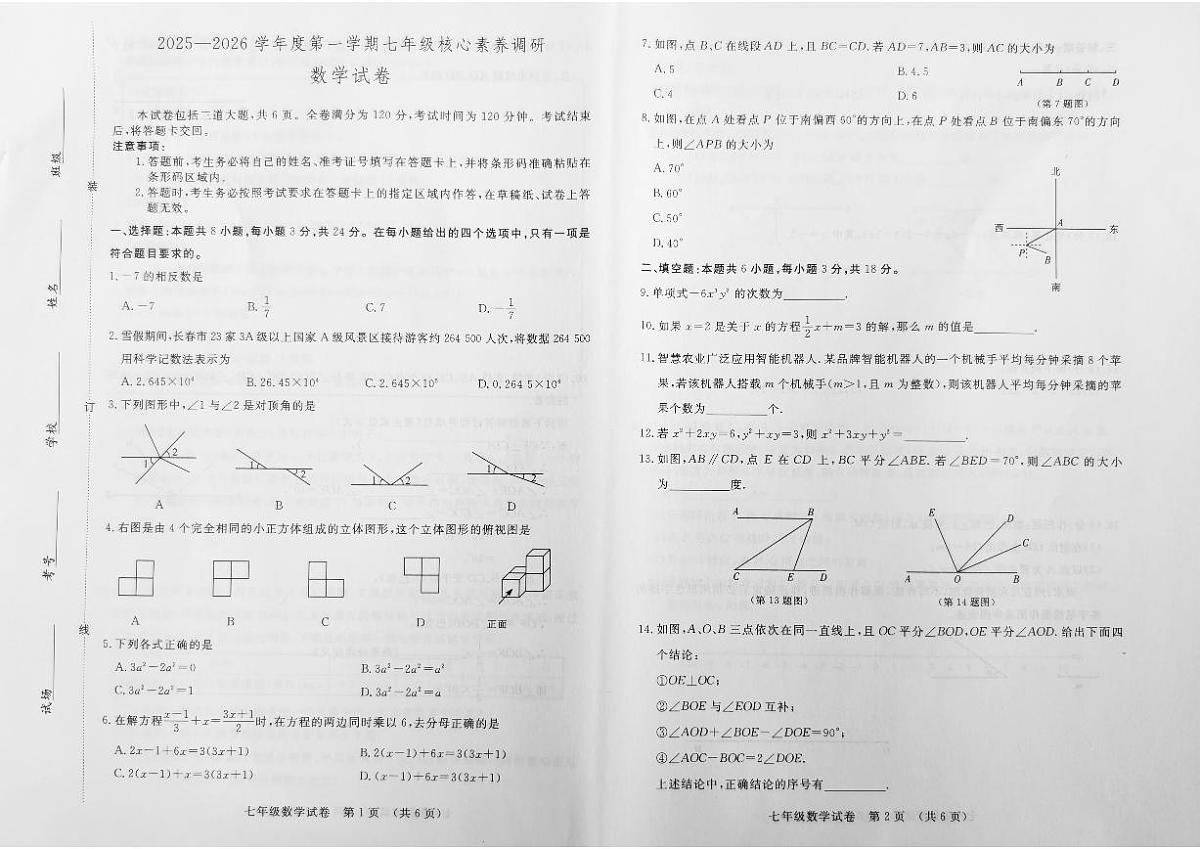 2025—2026学年度第一学期七年级核心素养调研
数学试卷
本试卷包括三道大题,共6页。全卷满分为120分,考试时间为120分钟。考试结束
后,将答题卡交回。
注意事项:
1.答题前,考生务必将自己的姓名、准考证号填写在答题卡上,并将条形码准确粘贴在
条形码区域内。
2.答题时,考生务必按照考试要求在答题卡上的指定区域内作答,在草稿纸、试卷上答
题无效。
一、选择题:本题共8小题,每小题3分,共24分。在每小题给出的四个选项中,只有一项是
符合题目要求的。
1.-7的相反数是
A.-7 B.1/7 C.7 D.-1/7
2.雪假期间,长春市23家3A级以上国家A级风景区接待游客约264 500人次,将数据264 500
用科学记数法表示为
A.2.645×10⁴ B.26.45×10⁴ C.2.645×10⁵ D.0.264 5×10⁴
3.下列图形中,∠1与∠2是对顶角的是
1 2 1 2 1 2 1 2
A B C D
4.右图是由4个完全相同的小正方体组成的立体图形,这个立体图形的俯视图是
A B C D 正面
5.下列各式正确的是
A.3a²-2a²=0 B.3a²-2a²=a²
C.3a²-2a²=1 D.3a²-2a²=a
6.在解方程(x-1)/3+x=(3x+1)/2时,在方程的两边同时乘以6,去分母正确的是
A.2x-1+6x=3(3x+1) B.2(x-1)+6x=3(3x+1)
C.2(x-1)+x=3(3x+1) D.(x-1)+6x=3(3x+1)
七年级数学试卷 第1页 (共6页)
班级
姓名
学校
考号
试场
装
订
线
7.如图,点B、C在线段AD上,且BC=CD.若AD=7,AB=3,则AC的大小为
A.5 B.4.5
C.4 D.6
A B C D
(第7题图)
8.如图,在点A处看点P位于南偏西60°的方向上,在点P处看点B位于南偏东70°的方向
上,则∠APB的大小为
A.70°
B.60°
C.50°
D.40°
北
西 A 东
P B
南
二、填空题:本题共6小题,每小题3分,共18分。
9.单项式-6x³y²的次数为________.
10.如果x=2是关于x的方程1/2x+m=3的解,那么m的值是________.
11.智慧农业广泛应用智能机器人.某品牌智能机器人的一个机械手平均每分钟采摘8个苹
果,若该机器人搭载m个机械手(m>1,且m为整数),则该机器人平均每分钟采摘的苹
果个数为________个.
12.若x²+2xy=6,y²+xy=3,则x²+3xy+y²=________.
13.如图,AB∥CD,点E在CD上,BC平分∠ABE.若∠BED=70°,则∠ABC的大小
为________度.
A B
C E D
(第13题图)
E D
C
A O B
(第14题图)
14.如图,A、O、B三点依次在同一直线上,且OC平分∠BOD,OE平分∠AOD.给出下面四
个结论:
①OE⊥OC;
②∠BOE与∠EOD互补;
③∠AOD+∠BOE-∠DOE=90°;
④∠AOC-BOC=2∠DOE.
上述结论中,正确结论的序号有________.
七年级数学试卷 第2页 (共6页)